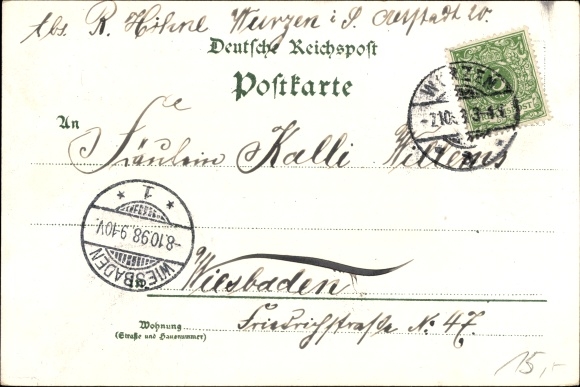 Abs. R. Höhne Wurzen i. S. Altstadt 20.
Deutsche Reichspost
Postkarte
An
Fräulein Kalli Willems
Wiesbaden
Wohnung
(Straße und Hausnummer)
Friedrichstraße No. 47.
WURZEN
WIESBADEN
-8.10.98. 9-10V.
* 1 *
15,-